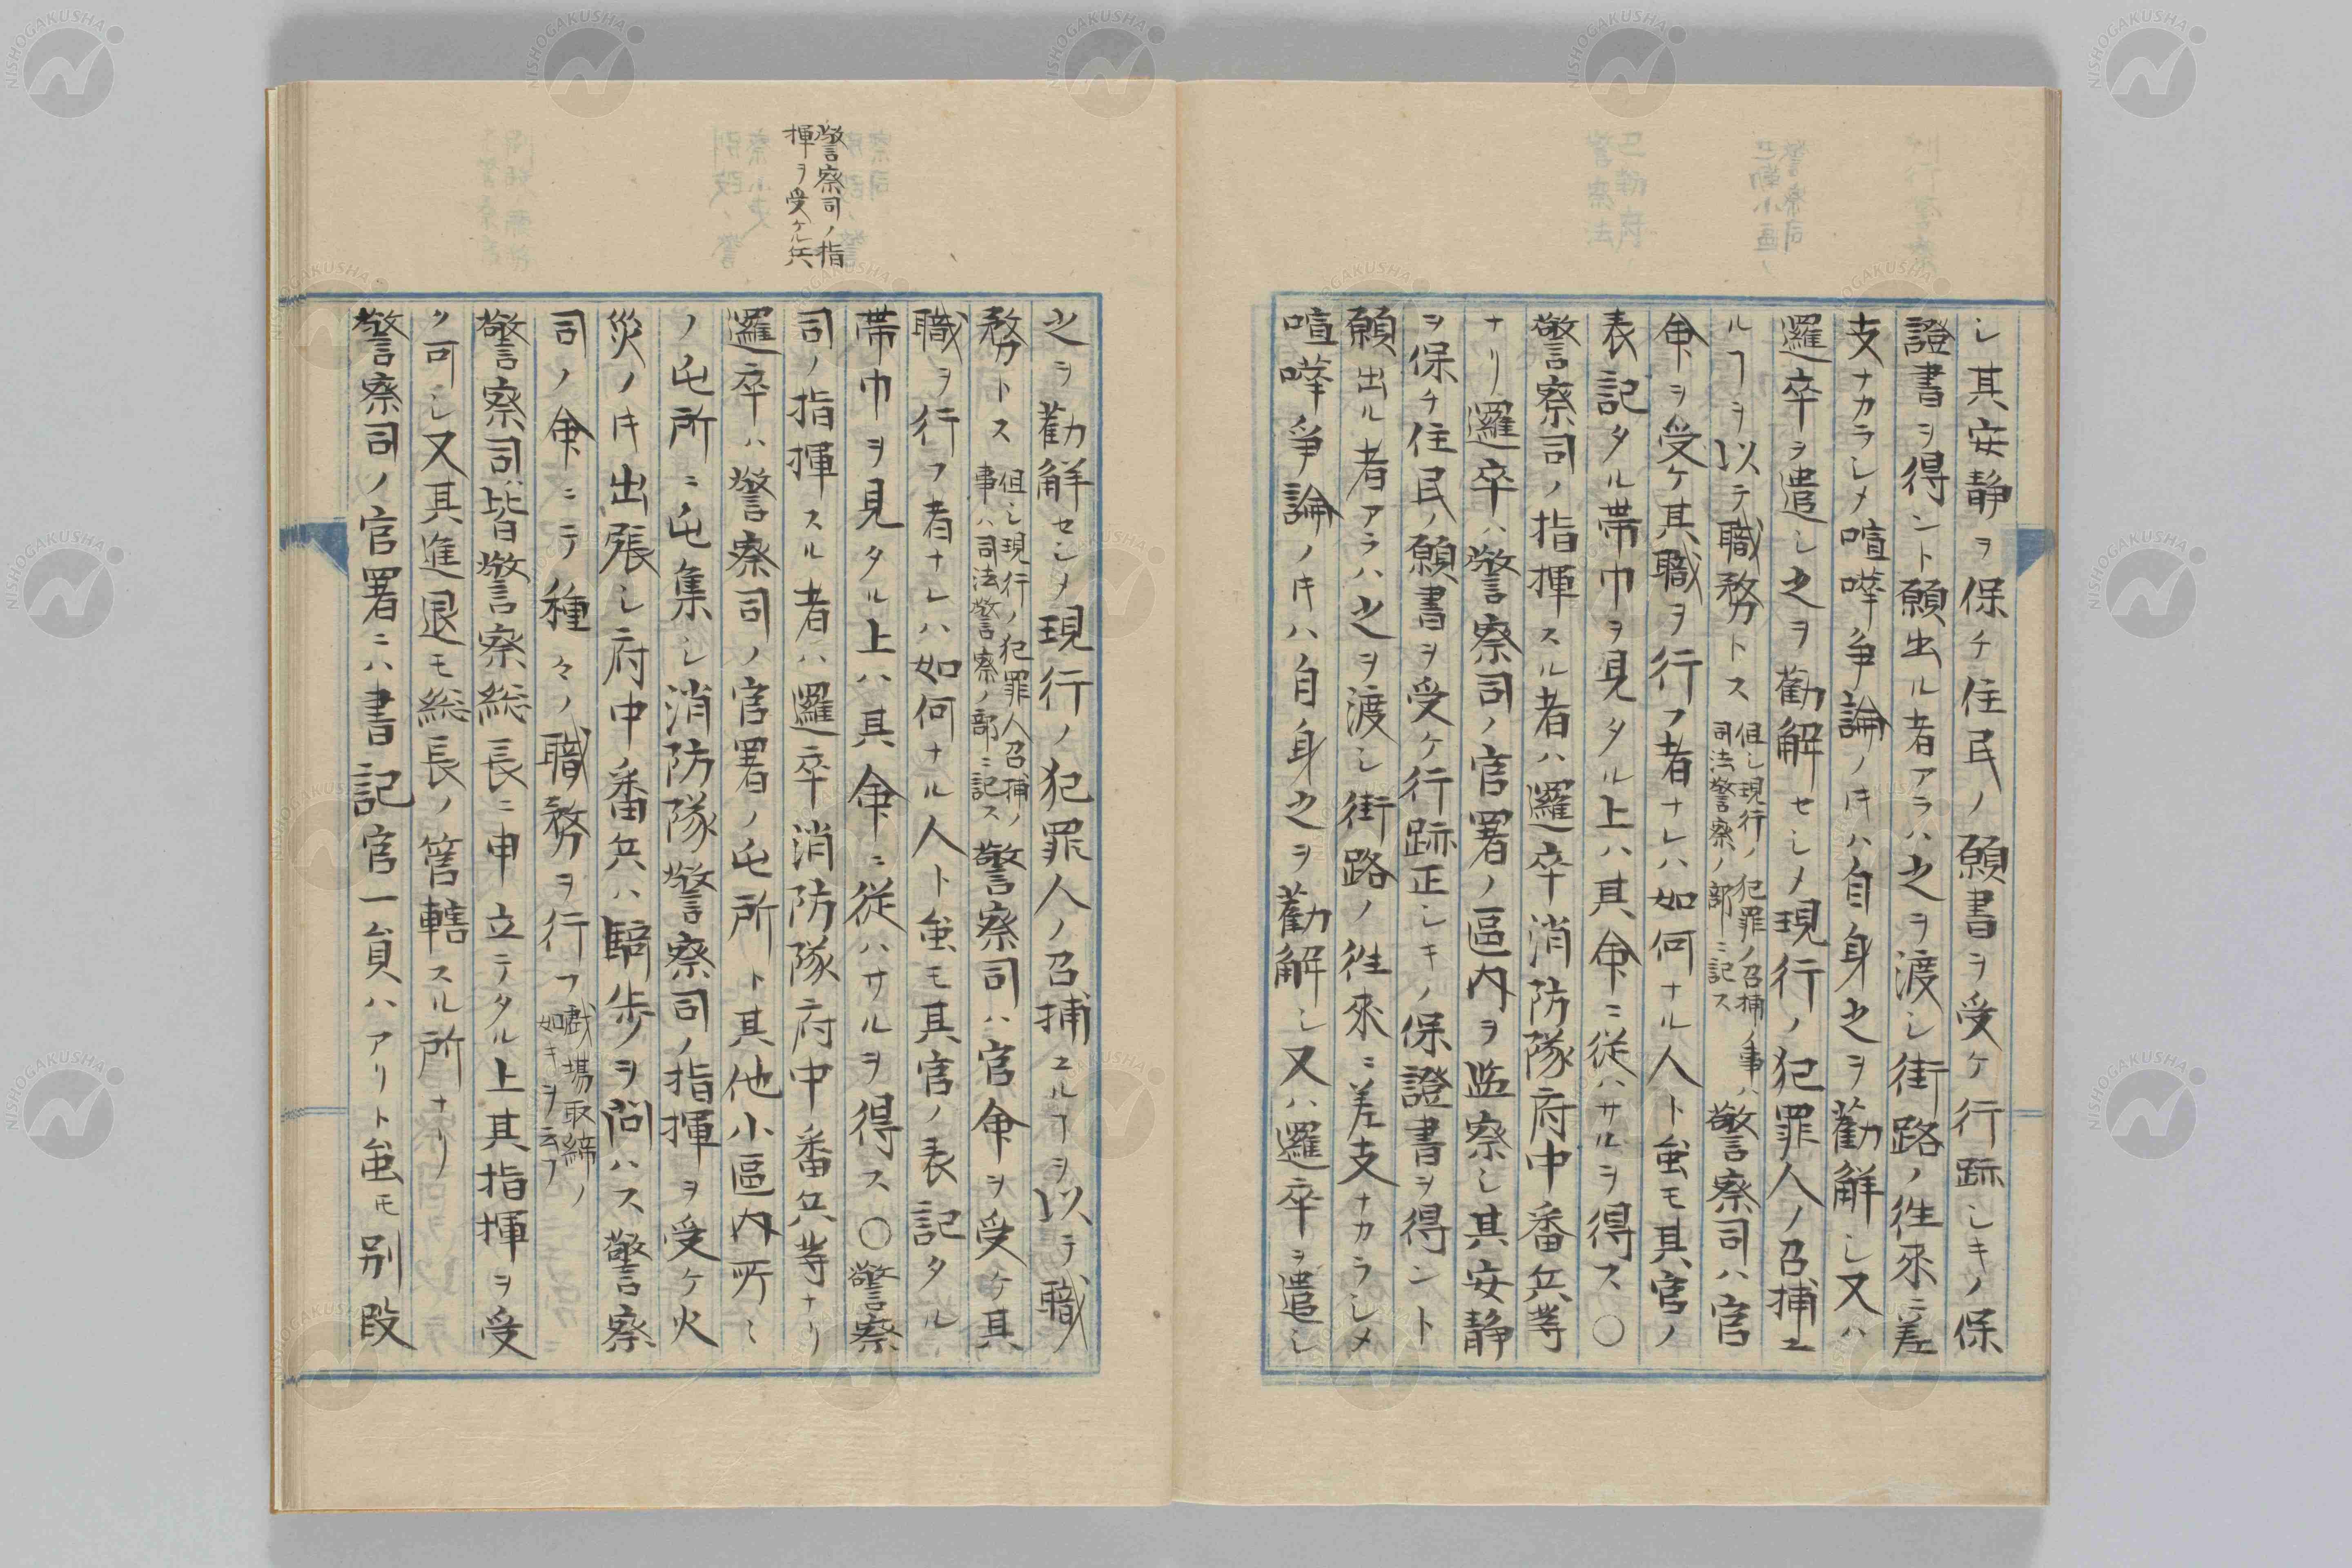 シ其安静ヲ保チ住民ノ願書ヲ受ケ行跡シキノ保
證書ヲ得ント願出ル者アラハ之ヲ渡シ街路ノ往來ニ差
支ナカラシメ喧嘩爭論ノ𪜈ハ自身之ヲ勸解シ又ハ
邏卒ヲ遣シ之ヲ勸解セシメ現行ノ犯罪人ノ召捕エ
ルヿヲ以テ職務トス但シ現行ノ犯罪ノ召捕ノ事ハ司法警察ノ部ニ記ス警察司ハ官
命ヲ受ケ其職ヲ行フ者ナレハ如何ナル人ト虽モ其官ノ
表記タル帯巾ヲ見タル上ハ其命ニ従ハサルヲ得ス〇
警察司ノ指揮スル者ハ邏卒消防隊府中番兵等
ナリ邏卒ハ警察司ノ官署ノ區内ヲ监察シ其安静
ヲ保チ住民ノ願書ヲ受ケ行跡正シキノ保證書ヲ得ント
願出ル者アラハ之ヲ渡シ街路ノ往來ニ差支ナカラシメ
喧嘩爭論ノ𪜈ハ自身之ヲ勸解シ又ハ邏卒ヲ遣シ
警察司ノ指
揮ヲ受ケル兵
之ヲ勸解セシメ現行ノ犯罪人ノ召捕エルヿヲ以テ職
務トス但シ現行ノ犯罪人召捕ノ事ハ司法警察ノ部ニ記ス警察司ハ官命ヲ受ケ其
職ヲ行フ者ナレハ如何ナル人ト虽モ其官ノ表記タル
帯巾ヲ見タル上ハ其命ニ従ハサルヲ得ス〇警察
司ノ指揮スル者ハ邏卒消防隊府中番兵等ナリ
邏卒ハ警察司ノ官署ノ屯所ト其他小區内所〻
ノ屯所ニ屯集シ消防隊警察司ノ指揮ヲ受ケ火
災ノ𪜈出張シ府中番兵ハ騎歩ヲ問ハス警察
司ノ命ニテ種々ノ職務ヲ行フ戲場取締ノ如キヲ云フ
警察司皆警察総長ニ申立テタル上其指揮ヲ受
ク可シ又其進退モ総長ノ管轄スル所ナリ
警察司ノ官署ニハ書記官一員ハアリト虽モ別段